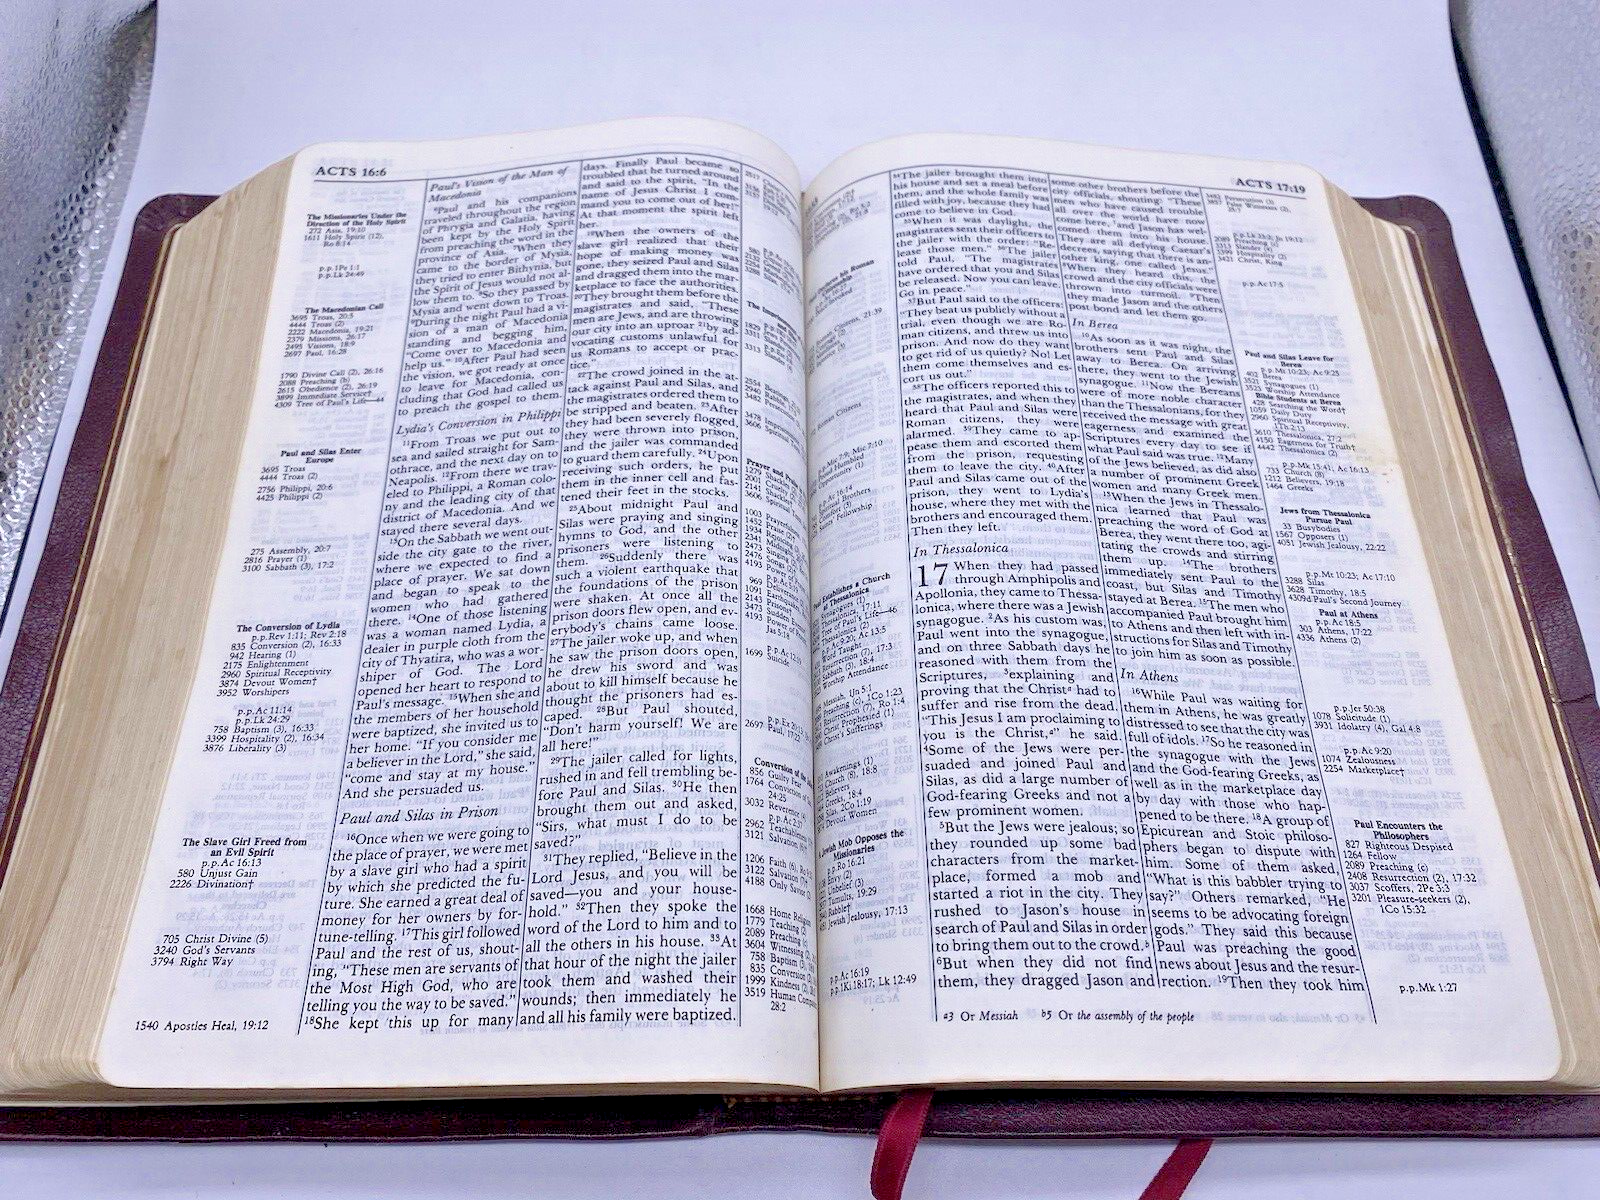 ACTS 16:6
The Missionaries Under the
Direction of the Holy Spirit
272 Asia, 19:10
1611 Holy Spirit (12),
Ro 8:14
p.p.1Pe 1:1
p.p.Lk 24:49
The Macedonian Call
3695 Troas, 20:5
4444 Troas (2)
2222 Macedonia, 19:21
2379 Missions, 26:17
2495 Visions, 18:9
2697 Paul, 16:28
1790 Divine Call (2), 26:16
2088 Preaching (b)
2615 Obedience (2), 26:19
3899 Immediate Service†
4309 Tree of Paul's Life—44
Paul and Silas Enter
Europe
3695 Troas
4444 Troas (2)
2756 Philippi, 20:6
4425 Philippi (2)
275 Assembly, 20:7
2816 Prayer (1)
3100 Sabbath (3), 17:2
The Conversion of Lydia
p.p.Rev 1:11; Rev 2:18
835 Conversion (2), 16:33
942 Hearing (1)
2175 Enlightenment
2960 Spiritual Receptivity
3874 Devout Women†
3952 Worshipers
p.p.Ac 11:14
p.p.Lk 24:29
758 Baptism (3), 16:33
3399 Hospitality (2), 16:34
3876 Liberality (3)
The Slave Girl Freed from
an Evil Spirit
p.p.Ac 16:13
580 Unjust Gain
2226 Divination†
705 Christ Divine (5)
3240 God's Servants
3794 Right Way
1540 Apostles Heal, 19:12
Paul's Vision of the Man of
Macedonia
6Paul and his companions
traveled throughout the region
of Phrygia and Galatia, having
been kept by the Holy Spirit
from preaching the word in the
province of Asia. 7When they
came to the border of Mysia,
they tried to enter Bithynia, but
the Spirit of Jesus would not al-
low them to. 8So they passed by
Mysia and went down to Troas.
9During the night Paul had a vi-
sion of a man of Macedonia
standing and begging him,
"Come over to Macedonia and
help us." 10After Paul had seen
the vision, we got ready at once
to leave for Macedonia, con-
cluding that God had called us
to preach the gospel to them.
Lydia's Conversion in Philippi
11From Troas we put out to
sea and sailed straight for Sam-
othrace, and the next day on to
Neapolis. 12From there we trav-
eled to Philippi, a Roman colo-
ny and the leading city of that
district of Macedonia. And we
stayed there several days.
13On the Sabbath we went out-
side the city gate to the river,
where we expected to find a
place of prayer. We sat down
and began to speak to the
women who had gathered
there. 14One of those listening
was a woman named Lydia, a
dealer in purple cloth from the
city of Thyatira, who was a wor-
shiper of God. The Lord
opened her heart to respond to
Paul's message. 15When she and
the members of her household
were baptized, she invited us to
her home. "If you consider me
a believer in the Lord," she said,
"come and stay at my house."
And she persuaded us.
Paul and Silas in Prison
16Once when we were going to
the place of prayer, we were met
by a slave girl who had a spirit
by which she predicted the fu-
ture. She earned a great deal of
money for her owners by for-
tune-telling. 17This girl followed
Paul and the rest of us, shout-
ing, "These men are servants of
the Most High God, who are
telling you the way to be saved."
18She kept this up for many
days. Finally Paul became so
troubled that he turned around
and said to the spirit, "In the
name of Jesus Christ I com-
mand you to come out of her!"
At that moment the spirit left
her.
19When the owners of the
slave girl realized that their
hope of making money was
gone, they seized Paul and Silas
and dragged them into the mar-
ketplace to face the authorities.
20They brought them before the
magistrates and said, "These
men are Jews, and are throwing
our city into an uproar 21by ad-
vocating customs unlawful for
us Romans to accept or prac-
tice."
22The crowd joined in the at-
tack against Paul and Silas, and
the magistrates ordered them to
be stripped and beaten. 23After
they had been severely flogged,
they were thrown into prison,
and the jailer was commanded
to guard them carefully. 24Upon
receiving such orders, he put
them in the inner cell and fas-
tened their feet in the stocks.
25About midnight Paul and
Silas were praying and singing
hymns to God, and the other
prisoners were listening to
them. 26Suddenly there was
such a violent earthquake that
the foundations of the prison
were shaken. At once all the
prison doors flew open, and ev-
erybody's chains came loose.
27The jailer woke up, and when
he saw the prison doors open,
he drew his sword and was
about to kill himself because he
thought the prisoners had es-
caped. 28But Paul shouted,
"Don't harm yourself! We are
all here!"
29The jailer called for lights,
rushed in and fell trembling be-
fore Paul and Silas. 30He then
brought them out and asked,
"Sirs, what must I do to be
saved?"
31They replied, "Believe in the
Lord Jesus, and you will be
saved—you and your house-
hold." 32Then they spoke the
word of the Lord to him and to
all the others in his house. 33At
that hour of the night the jailer
took them and washed their
wounds; then immediately he
and all his family were baptized.
1699 Suicide
856 Guilty
3032 Reverence
2962
3121
1206 Faith
3122 Salvation
4188 Only
1668 Home
1779 Teaching
2089 Preaching
3604 Witnessing
758 Baptism
835 Conversion
1999 Kindness
3519 Human
28:2
ACTS 17:19
34The jailer brought them into
his house and set a meal before
them, and the whole family was
filled with joy, because they had
come to believe in God.
35When it was daylight, the
magistrates sent their officers to
the jailer with the order: "Re-
lease those men." 36The jailer
told Paul, "The magistrates
have ordered that you and Silas
be released. Now you can leave.
Go in peace."
37But Paul said to the officers:
"They beat us publicly without a
trial, even though we are Ro-
man citizens, and threw us into
prison. And now do they want
to get rid of us quietly? No! Let
them come themselves and es-
cort us out."
38The officers reported this to
the magistrates, and when they
heard that Paul and Silas were
Roman citizens, they were
alarmed. 39They came to ap-
pease them and escorted them
from the prison, requesting
them to leave the city. 40After
Paul and Silas came out of the
prison, they went to Lydia's
house, where they met with the
brothers and encouraged them.
Then they left.
In Thessalonica
17 When they had passed
through Amphipolis and
Apollonia, they came to Thessa-
lonica, where there was a Jewish
synagogue. 2As his custom was,
Paul went into the synagogue,
and on three Sabbath days he
reasoned with them from the
Scriptures, 3explaining and
proving that the Christa had to
suffer and rise from the dead.
"This Jesus I am proclaiming to
you is the Christ,a" he said.
4Some of the Jews were per-
suaded and joined Paul and
Silas, as did a large number of
God-fearing Greeks and not a
few prominent women.
5But the Jews were jealous; so
they rounded up some bad
characters from the market-
place, formed a mob and
started a riot in the city. They
rushed to Jason's house in
search of Paul and Silas in order
to bring them out to the crowd.b
6But when they did not find
them, they dragged Jason and
some other brothers before the
city officials, shouting: "These
men who have caused trouble
all over the world have now
come here, 7and Jason has wel-
comed them into his house.
They are all defying Caesar's
decrees, saying that there is an-
other king, one called Jesus."
8When they heard this, the
crowd and the city officials were
thrown into turmoil. 9Then
they made Jason and the others
post bond and let them go.
In Berea
10As soon as it was night, the
brothers sent Paul and Silas
away to Berea. On arriving
there, they went to the Jewish
synagogue. 11Now the Bereans
were of more noble character
than the Thessalonians, for they
received the message with great
eagerness and examined the
Scriptures every day to see if
what Paul said was true. 12Many
of the Jews believed, as did also
a number of prominent Greek
women and many Greek men.
13When the Jews in Thessalo-
nica learned that Paul was
preaching the word of God at
Berea, they went there too, agi-
tating the crowds and stirring
them up. 14The brothers
immediately sent Paul to the
coast, but Silas and Timothy
stayed at Berea. 15The men who
accompanied Paul brought him
to Athens and then left with in-
structions for Silas and Timothy
to join him as soon as possible.
In Athens
16While Paul was waiting for
them in Athens, he was greatly
distressed to see that the city was
full of idols. 17So he reasoned in
the synagogue with the Jews
and the God-fearing Greeks, as
well as in the marketplace day
by day with those who hap-
pened to be there. 18A group of
Epicurean and Stoic philoso-
phers began to dispute with
him. Some of them asked,
"What is this babbler trying to
say?" Others remarked, "He
seems to be advocating foreign
gods." They said this because
Paul was preaching the good
news about Jesus and the resur-
rection. 19Then they took him
p.p.Ac 16:19
p.p.1Ki 18:17; Lk 12:49
a3 Or Messiah b5 Or the assembly of the people
p.p.Lk 23:2; Jn 19:12
2089 Preaching (c)
3313 Slander (4)
3399 Hospitality (2)
3421 Christ, King
p.p.Ac 17:5
Paul and Silas Leave for
Berea
p.p.Mt 10:23; Ac 9:25
402 Berea
3521 Synagogues (1)
3523 Worship Attendance
Bible Students at Berea
428 Searching the Word†
1059 Daily Duty
2960 Spiritual Receptivity,
1Th 2:13
3610 Thessalonica, 27:2
4150 Eagerness for Truth†
4442 Thessalonica (2)
p.p.Mk 15:41; Ac 16:13
733 Church (8)
1212 Believers, 19:18
1464 Greeks
Jews from Thessalonica
Pursue Paul
33 Busybodies
1567 Opposers (1)
4051 Jewish Jealousy, 22:22
p.p.Mt 10:23; Ac 17:10
3288 Silas
3628 Timothy, 18:5
4309d Paul's Second Journey
Paul at Athens
p.p.Ac 18:5
303 Athens, 17:22
4336 Athens (2)
p.p.Jer 50:38
1078 Solicitude (1)
3931 Idolatry (4), Gal 4:8
p.p.Ac 9:20
1074 Zealousness
2254 Marketplace†
Paul Encounters the
Philosophers
827 Righteous Despised
1264 Fellow
2089 Preaching (c)
2408 Resurrection (2), 17:32
3037 Scoffers, 2Pe 3:3
3201 Pleasure-seekers (2),
1Co 15:32
p.p.Mk 1:27